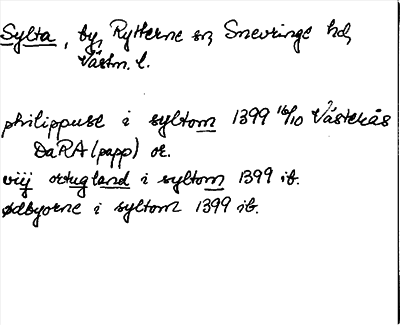 Sylta, by, Rytterne sn, Snevringe hd,
Västm. l.
philippuse i syltom 1399 16/10 Västerås
DaRA (papp) or.
viij ortugland i syltom 1399 ib.
odbyorne i syltom 1399 ib.